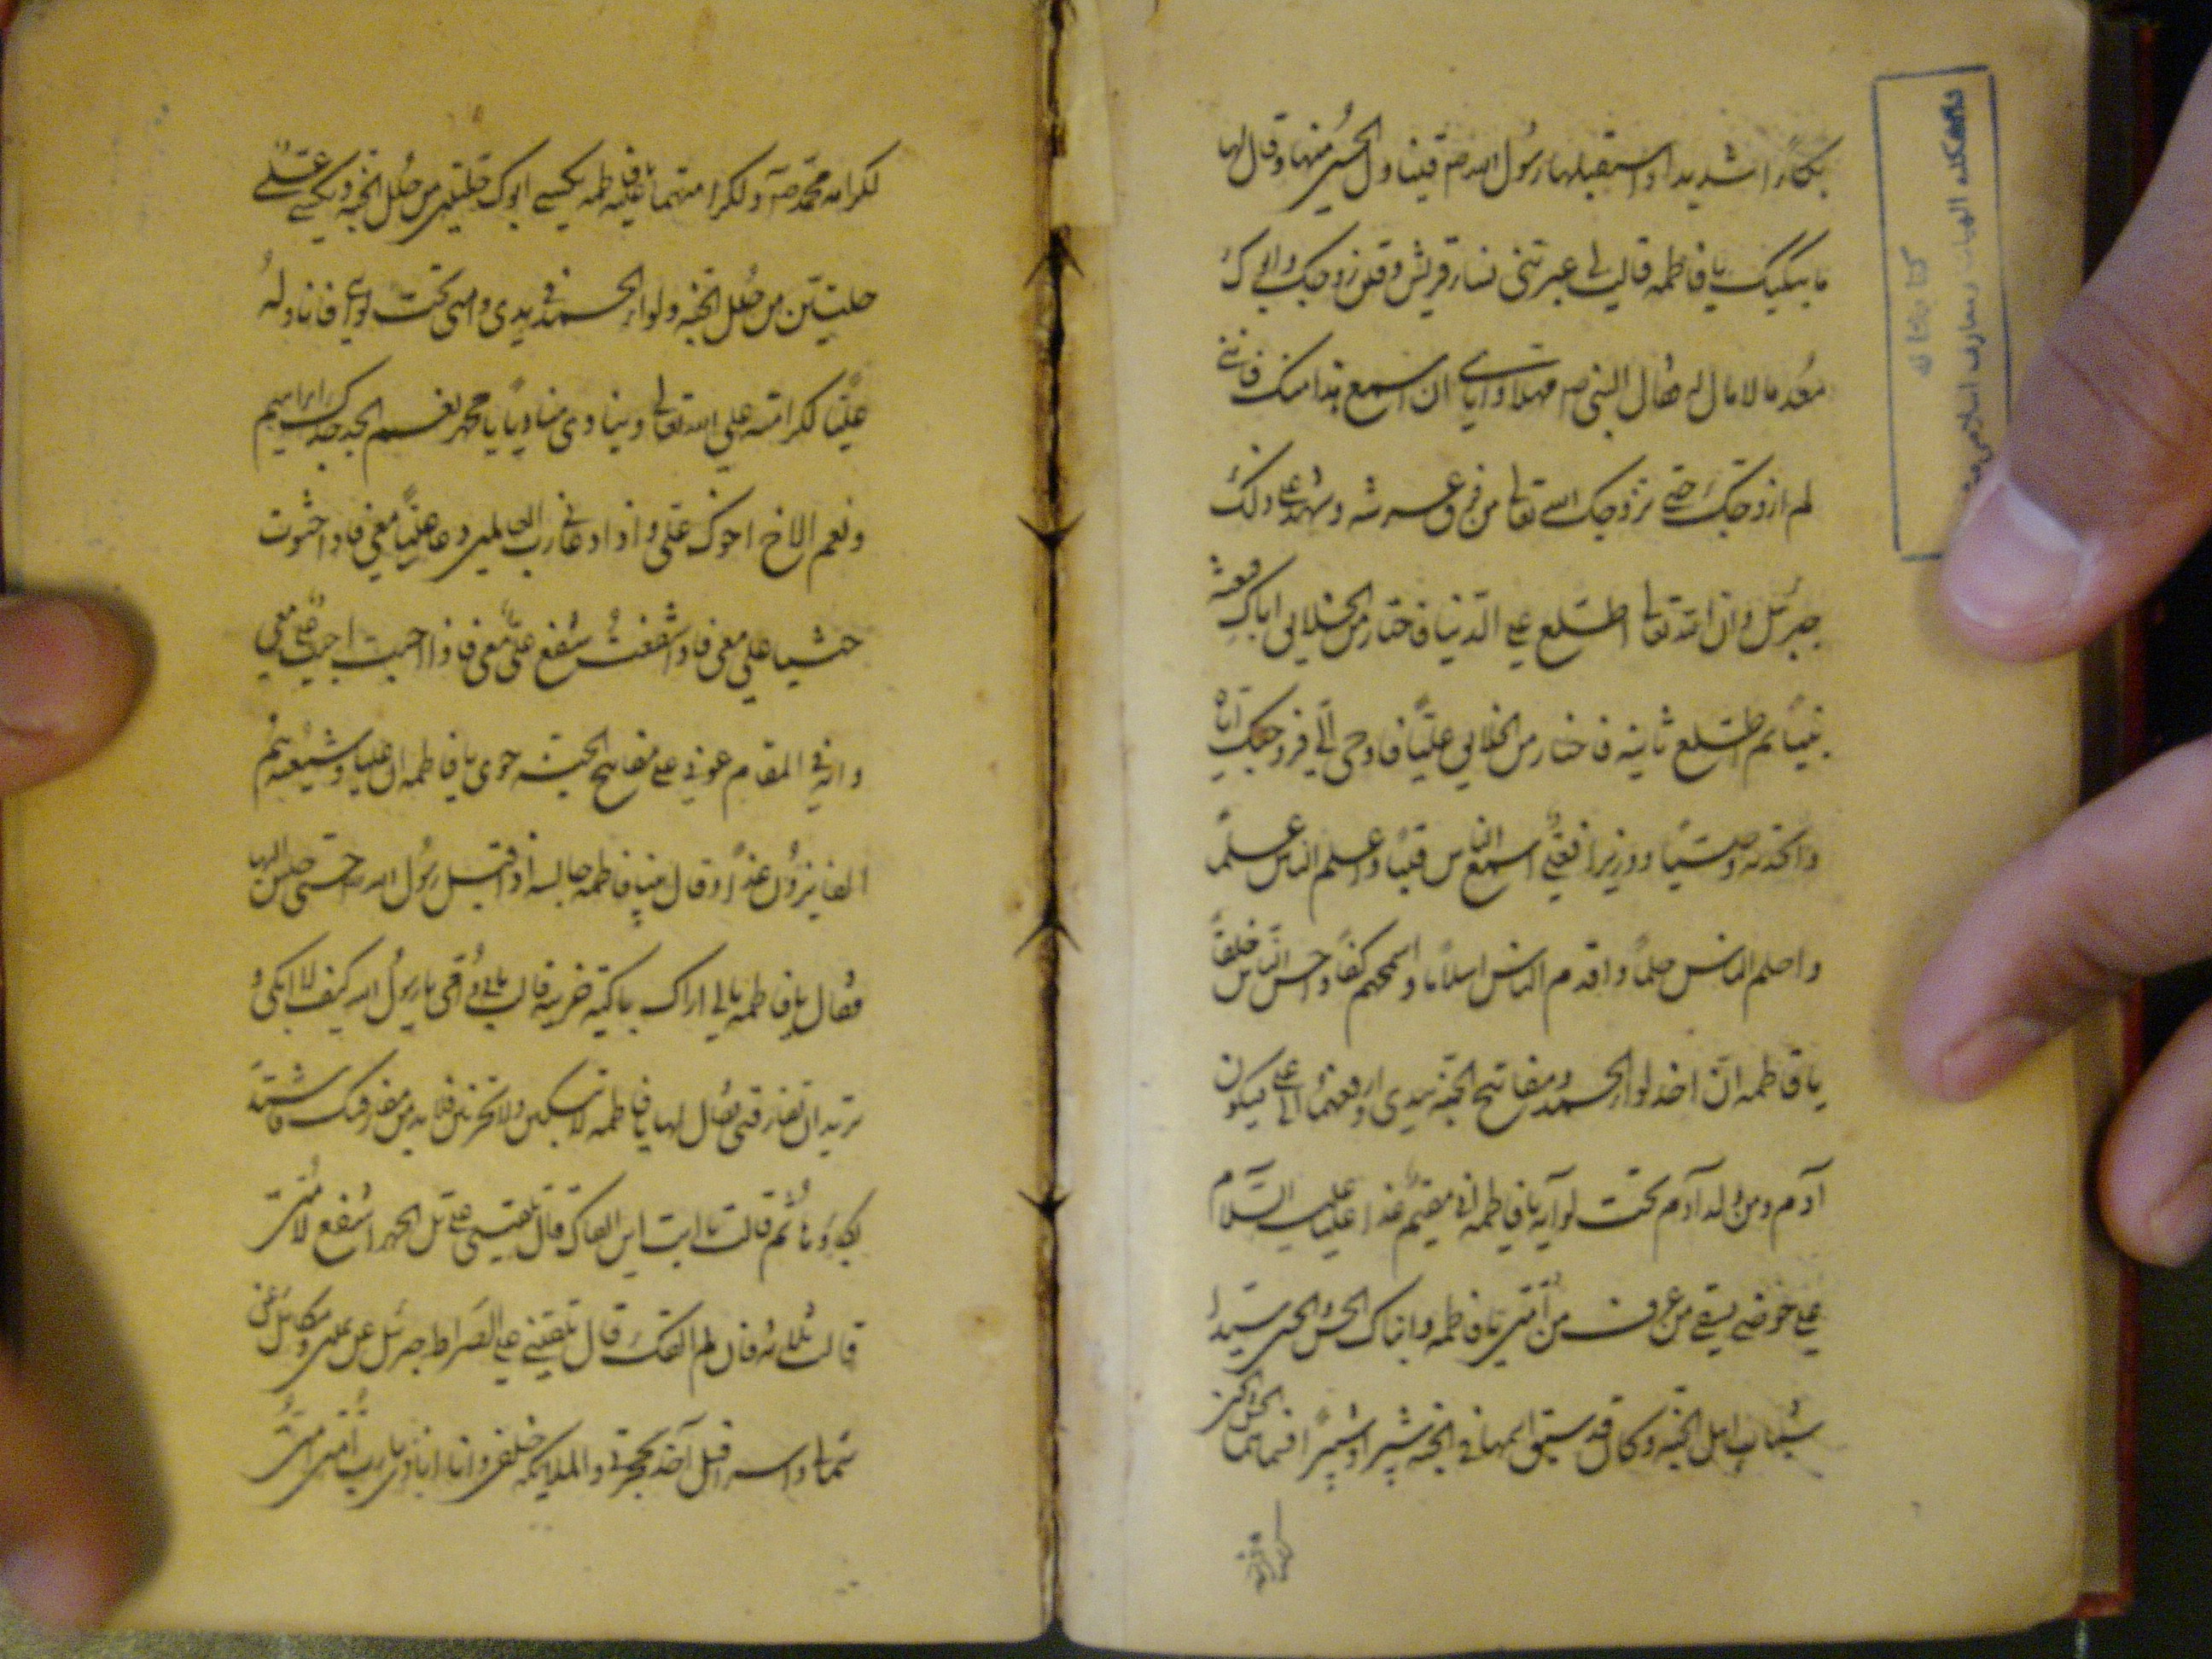 بكاءً شديدا واستقبلها رسول الله ص فتناول الحسين منها وقال لها
ما يبكيك يا فاطمه قالت عيرتني نساء قريش وقلن زوجك ابوك
معدما لا مال له فقال النبي ص مهلا واياي ان اسمع هذا منك فانني
لم ازوجك حتى زوجك الله تعالى من فوق عرشه وشهد على ذلك
جبرئيل وان الله تعالى اطلع على الدنيا فاختار من الخلايق اباك فبعثه
نبيًا ثم اطلع ثانيه فاختار من الخلايق عليًّا فاوحى الي فزوجتك اياه
واتخذته وصيًّا ووزيرا فعلي اشجع الناس قلبًا واعلم الناس علمًا
واحلم الناس حلمًا واقدم الناس اسلاما واسمحهم كفًا واحسن الناس خلقًا
يا فاطمه اني اخذ لواء الحمد ومفاتيح الجنة بيدي وارفعهما الى علي فيكون
آدم ومن ولد آدم تحت لوآيه يا فاطمه اني مقيم غدا عليا عليه السّلام
على حوضي يسقي من عرف من امتي يا فاطمه وابناك الحسن والحسين سيدا
شباب اهل الجنه وكان قد سبق اسمهما في الجنه شبرا وشبيرًا فسماهما الحسن والحسين
لكرامة محمد ص ولكرامتهما عليه يا فاطمه يكسى ابوك حلتين من حلل الجنه ويكسى علي
حلتين من حلل الجنه ولواء الحمد في يدي وامتي تحت لوآئي فاناوله
عليًّا لكرامته على الله تعالى وينادي مناديًا يا محمد نعم الجد جدك ابراهيم
ونعم الاخ اخوك علي واذا دعاني رب العالمين دعا عليًّا معي واذا جثوت
جثا علي معي واذا شفعت شفع علي معي واذا اجبت اجيب علي معي
وانه في المقام عوني على مفاتيح الجنة قومي يا فاطمه ان عليا وشيعته هم
الفايزون غدًا وقال بينا فاطمه جالسه اذ اقبل رسول الله ص حتى جلس اليها
فقال يا فاطمه مالي اراك باكية حزينه قالت بابي وامي يا رسول الله كيف لا ابكي و
تريد ان تفارقني فقال لها يا فاطمه لا تبكين ولا تحزنين فلا بد من مفارقتك فاشتد
بكاؤها ثم قالت يا ابت اين القاك قال تلقيني على تل الحمد اشفع لامتي
قالت يا ابه فان لم القك قال تلقيني على الصراط جبرئيل عن يميني وميكائيل عن
شمالي واسرافيل آخذ بحجزتي والملايكه خلفي وانا انادي يا رب امتي امتي